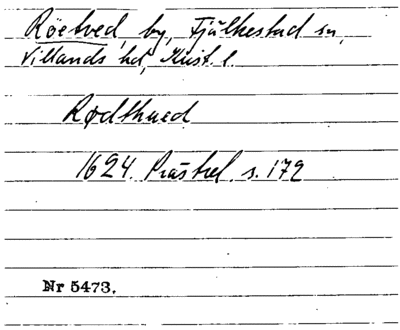 Röetved, by, Fjälkestad sn,
Villands hd, Krist. l.
Rødthued
1624. Prästrel. s. 172
Nr 5473.